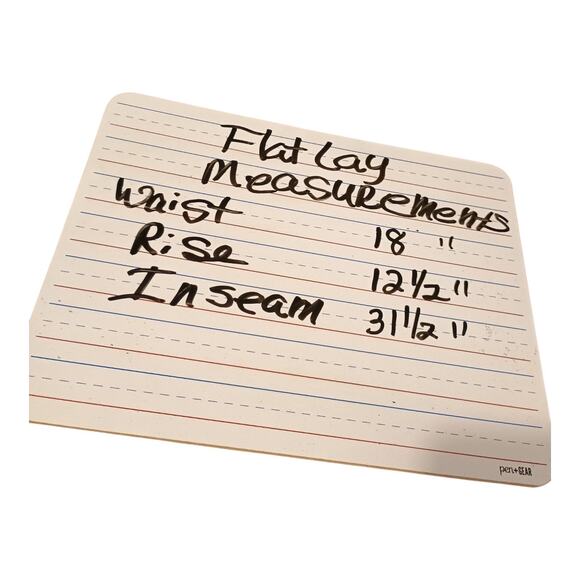 Flat Lay
Measurements
Waist 18 "
Rise 12 1/2 "
Inseam 31 1/2 "
pen+GEAR